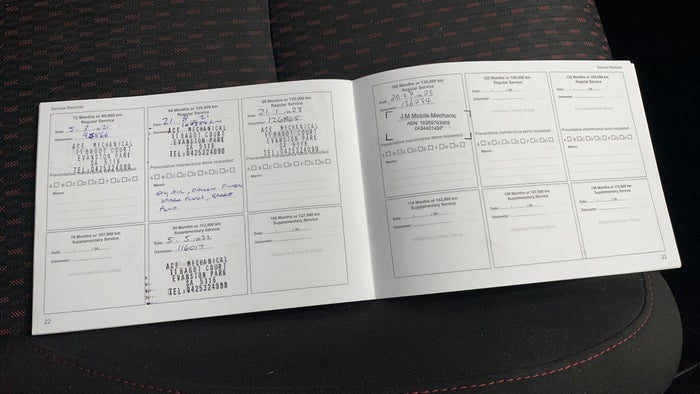 Service Records
72 Months or 90,000 km
Regular Service
Date: 5 . 3 . 20 21
Odometer:
ACE MECHANICAL
11 BAGOT COURT
EVANSTON PARK
SA 5116
TEL: 0425324090
Preventative maintenance items requested
A B C D E F G H
Memo:
84 Months or 105,000 km
Regular Service
Date: 21
Odometer:
ACE MECHANICAL
11 BAGOT COURT
EVANSTON PARK
SA 5116
TEL: 0425324090
Preventative maintenance items requested
A B C D E F G H
Memo:
OIL, AIR, POLLEN FILTERS,
SPARK PLUGS, BRAKE
FLUID
96 Months or 120,000 km
Regular Service
Date: 21 . 1 . 20 23
Odometer: 126865
ACE MECHANICAL
11 BAGOT COURT
EVANSTON PARK
SA 5116
TEL: 0425324090
Preventative maintenance items requested
A B C D E F G H
Memo:
78 Months or 97,500 km
Supplementary Service
Date: / / 20
Odometer:
Authorised Dealer Stamp
90 Months or 112,500 km
Supplementary Service
Date: 5 . 5 . 20 22
Odometer: 116017
ACE MECHANICAL
11 BAGOT COURT
EVANSTON PARK
SA 5116
TEL: 0425324090
102 Months or 127,500 km
Supplementary Service
Date: / / 20
Odometer:
Authorised Dealer Stamp
22
Service Records
108 Months or 135,000 km
Regular Service
Date: 20 . 07 . 20 23
Odometer: 136234
J.M Mobile Mechanic
ABN:
0434421437
Preventative maintenance items requested
A B C D E F G H
Memo:
120 Months or 150,000 km
Regular Service
Date: / / 20
Odometer:
Authorised Dealer Stamp
Preventative maintenance items requested
A B C D E F G H
Memo:
132 Months or 165,000 km
Regular Service
Date: / / 20
Odometer:
Authorised Dealer Stamp
Preventative maintenance items requested
A B C D E F G H
Memo:
114 Months or 142,500 km
Supplementary Service
Date: / / 20
Odometer:
Authorised Dealer Stamp
126 Months or 157,500 km
Supplementary Service
Date: / / 20
Odometer:
Authorised Dealer Stamp
138 Months or 172,500 km
Supplementary Service
Date: / / 20
Odometer:
Authorised Dealer Stamp
23